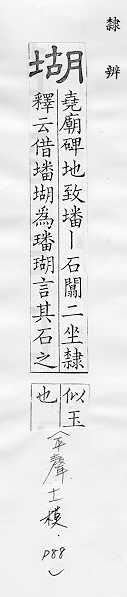 隸辨
堨
堯廟碑地致墦丨石闕二坐隸
釋云借墦堨為璠瑚言其石之
似玉
也
（平聲．十一模．
P88）